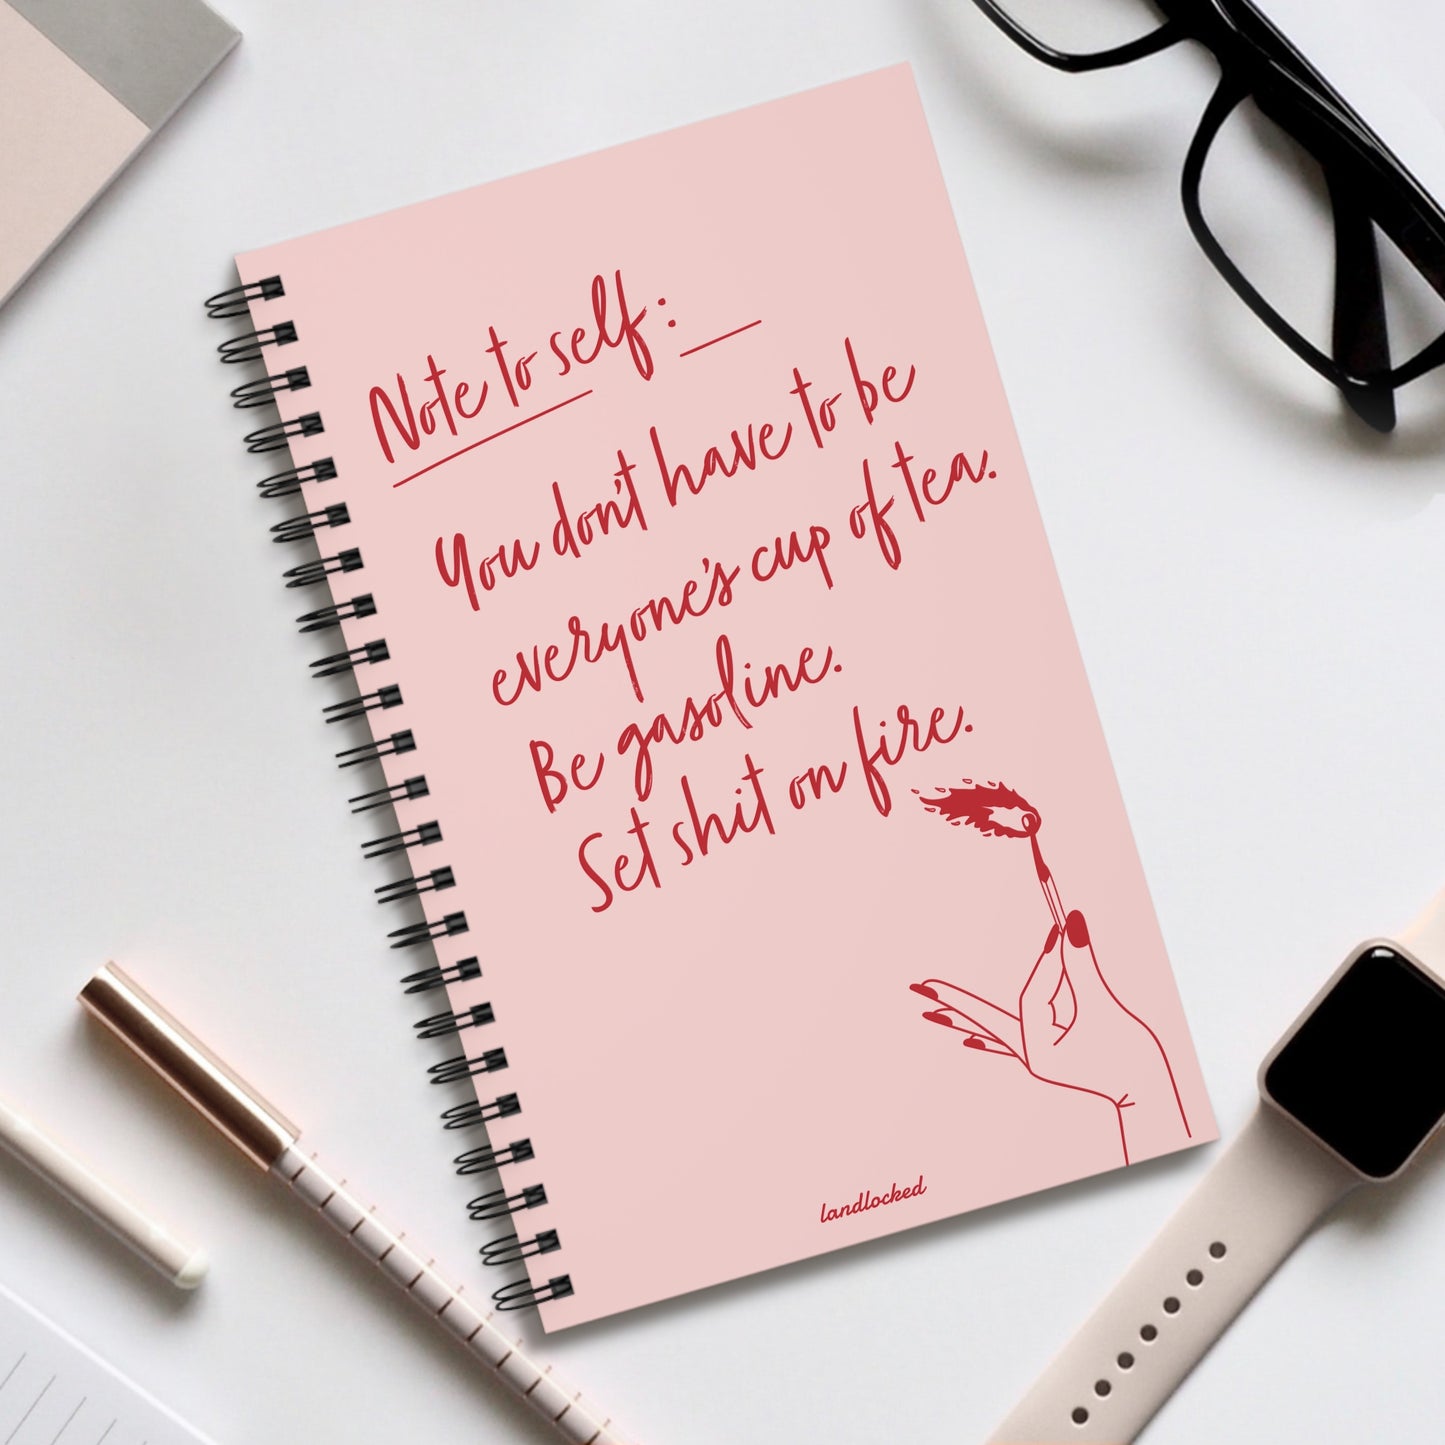 Note to self:
You don't have to be
everyone's cup of tea.
Be gasoline.
Set shit on fire.
landlocked